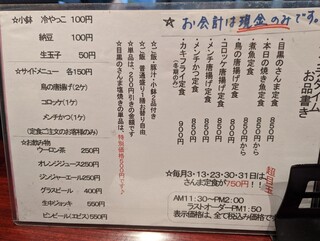 ☆お会計は現金のみです。
ランチタイム
お品書き
・目黒のさんま定食 850円
・本日の焼き魚定食 850円から
・煮魚定食 850円から
・鳥の唐揚げ定食 850円
・コロッケ唐揚げ定食 850円
・メンチ唐揚げ定食 850円
・メンチカツ定食 850円
・カキフライ定食 900円
(冬期のみ)
☆毎月3・13・23・30・31日は
さんま定食が750円!!
AM11:30~PM2:00
ラストオーダーPM1:50
表示価格は、全て税込み価格で
☆ご飯、味噌汁・小鉢2品付き
☆ご飯 普通盛り1膳お替り自由
☆単品は、200円引きの金額です
☆目黒のさんま塩焼きの単品は、特別価格600円です♪
☆小鉢 冷やっこ 100円
納豆 100円
生玉子 50円
☆サイドメニュー 各150円
鳥の唐揚げ(2ケ)
コロッケ(1ケ)
メンチかつ(1ケ)
(定食ご注文のお客様のみ)
☆お飲み物
ウーロン茶 250円
オレンジジュース 250円
ジンジャーエール 250円
グラスビール 400円
生中ジョッキ 550円
ビンビール(エビス) 550円